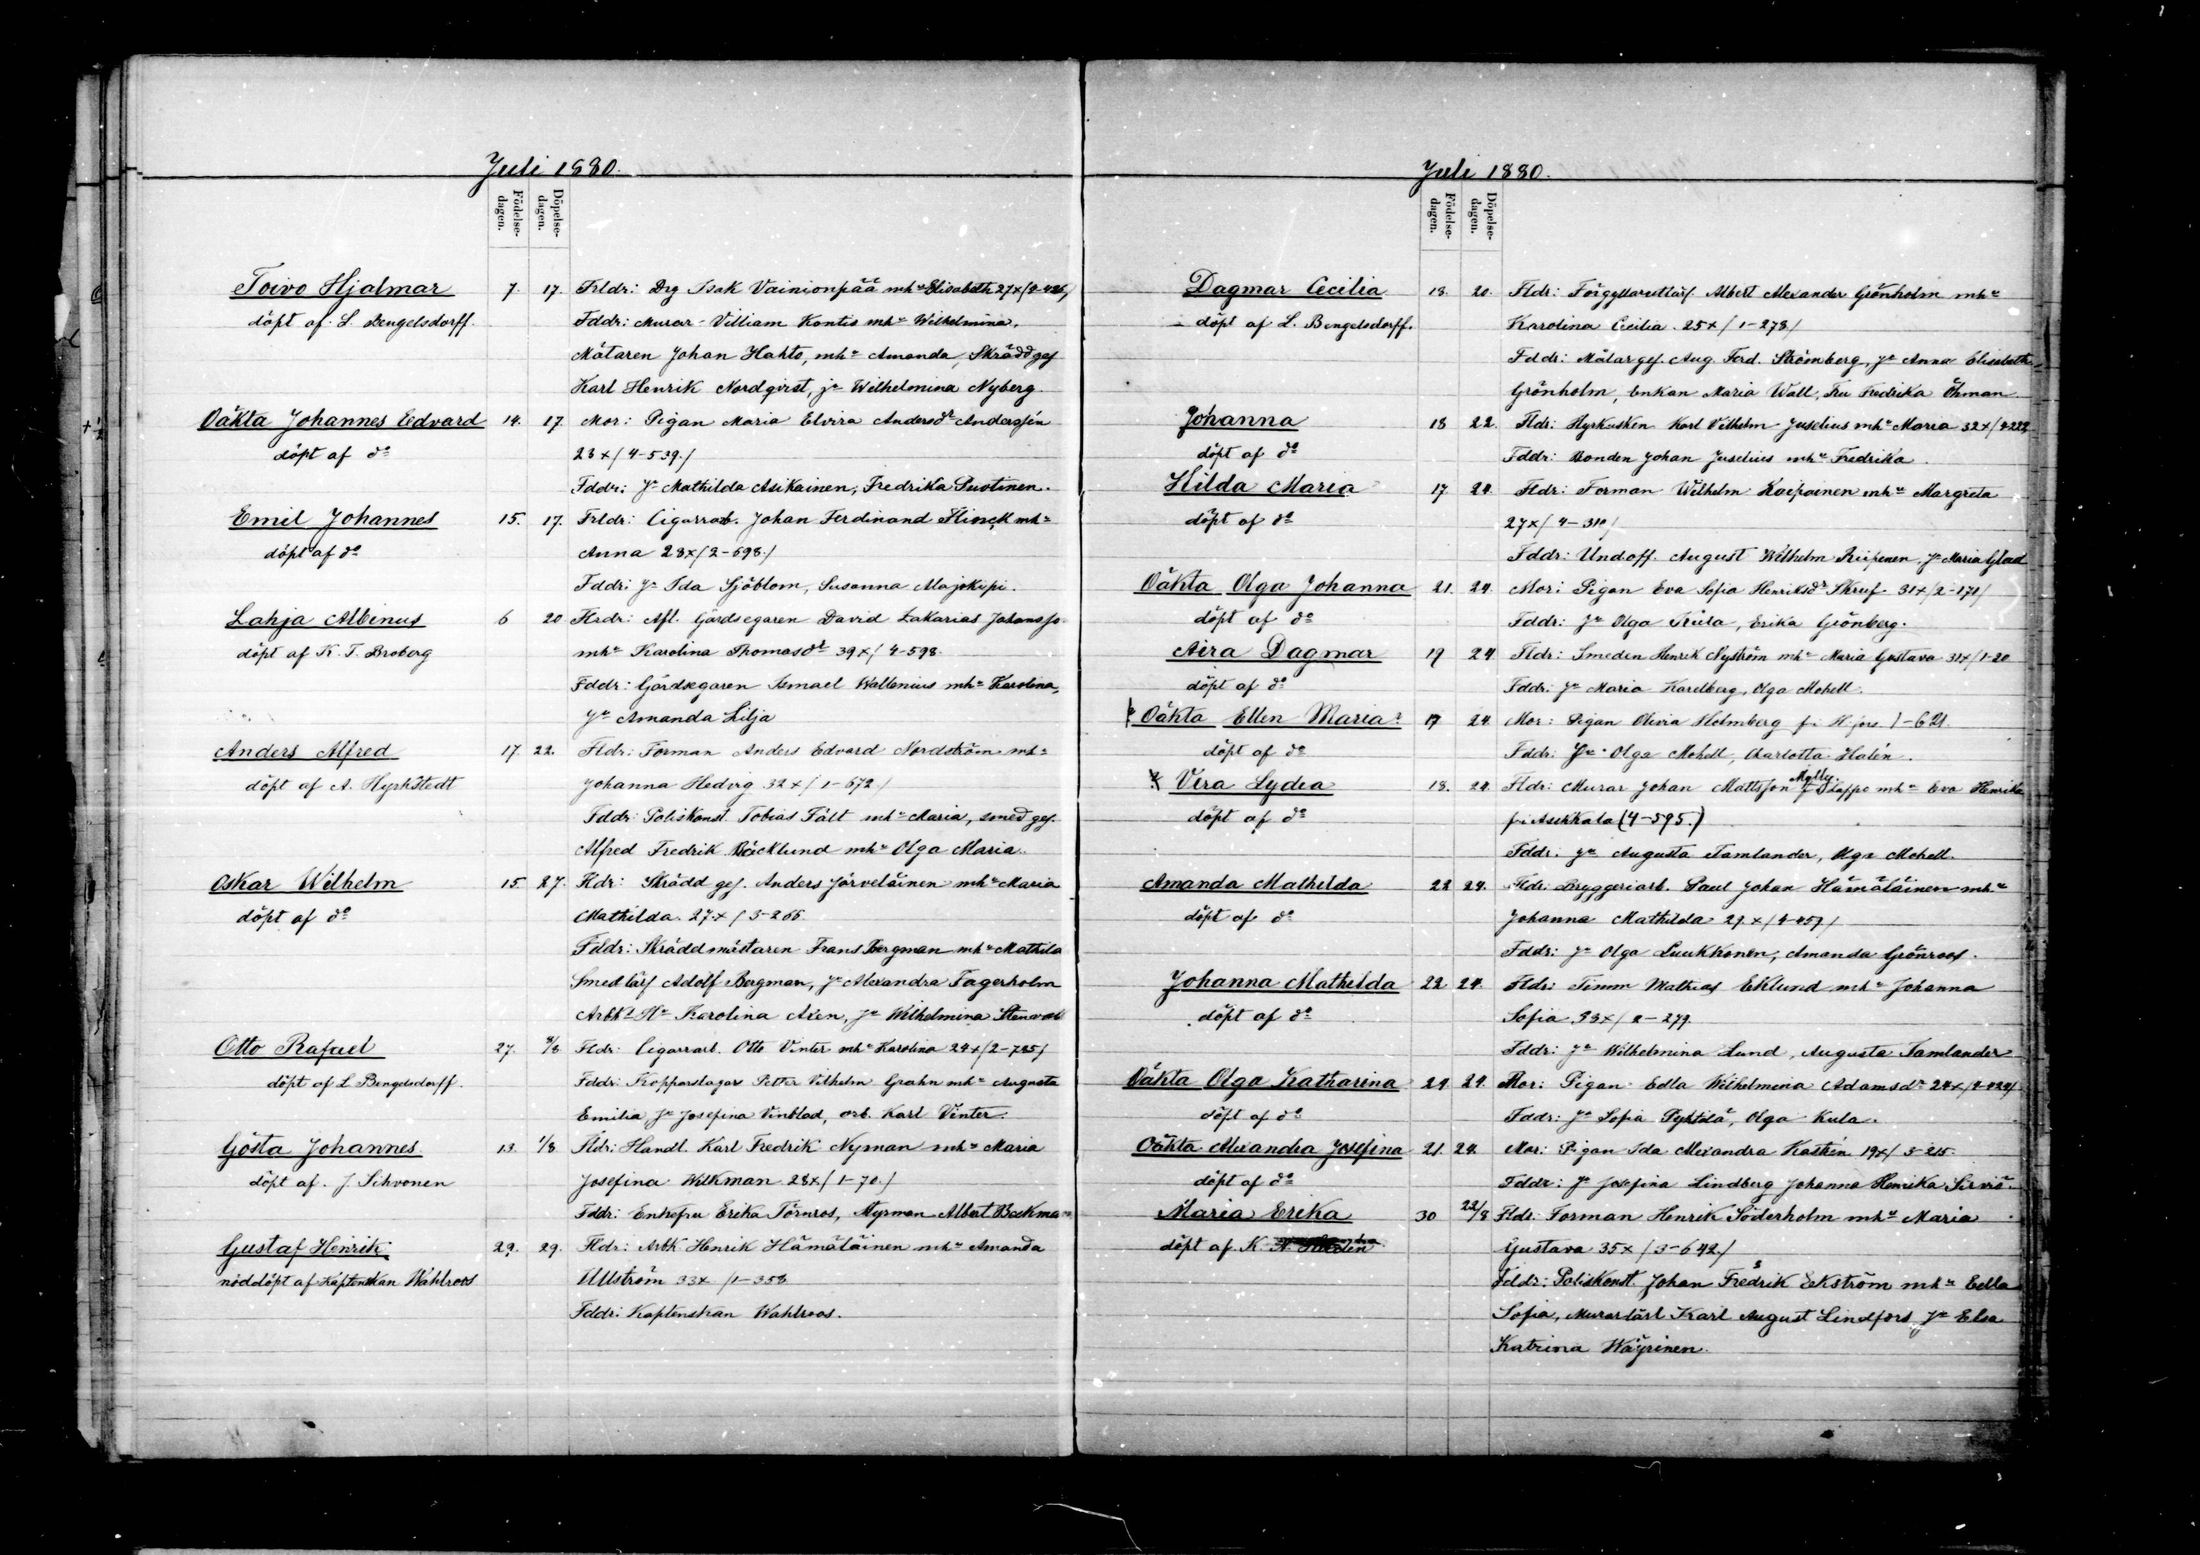 Juli 1880.
Födelse-dagen.
Döpelse-dagen.
Toivo Hjalmar 7. 17. Frldr: Drg Isak Vainionpää mh Elisabeth 27x/2-426/
döpt af L. Bengelsdorff. Fddr: Murar Villiam Kontio mh Wilhelmina,
Mätaren Johan Hahto, mh Amanda, Skrädd gej
Karl Henrik Nordqvist, jn Wilhelmina Nyberg.
Oäkta Johannes Edvard 14. 17. Mor: Pigan Maria Elvira Andersdr Andersjén
döpt af do 23x/4-539./
Fddr: Jn Mathilda Asikainen, Fredrika Suotinen.
Emil Johannes 15. 17. Frldr: Cigarrarb. Johan Ferdinand Flinck mh
döpt af do Anna 28x/2-698./
Fddr: Jn Ida Sjöblom, Susanna Majokupi.
Lahja Albinus 6 20 Flrdr: Afl. Gårdsegaren David Zakarias Johansso
döpt af K. T. Broberg mh Karolina Thomasdr 39x/4-598.
Fddr: Gårdsegaren Ismael Wallenius mh Karolina,
Jn Amanda Lilja
Anders Alfred 17. 22. Fldr: Forman Anders Edvard Nordström mh
döpt af A. Hyrkstedt Johanna Hedvig 32x/1-672/
Fddr: Poliskonst. Tobias Fält mh Maria, smed gej.
Alfred Fredrik Bäcklund mh Olga Maria.
Oskar Wilhelm 15. 27. Fldr: Skrädd gej. Anders Järveläinen mh Maria
döpt af do Mathilda. 27x/3-266.
Fddr: Skräddmästaren Frans Bergman mh Mathila
Smedlärj Adolf Bergman, Jn Alexandra Fagerholm
Karolina Axen, Jn Wilhelmina Stenvall
Otto Rafael 27. 3/8 Fldr: Cigarrarb. Otto Vinter mh Karolina 24x/2-785/
döpt af L. Bengelsdorff. Fddr: Kopparslagar Petter Vilhelm Grahn mh Augusta
Emilia, Jn Josefina Vinblad, arb. Karl Vinter.
Gösta Johannes 13. 1/8 Fldr: Handl. Karl Fredrik Nyman mh Maria
döpt af J. Sihvonen Josefina Wilkman 28x/1-70./
Fddr: Enkefru Erika Törnros, Styrman Albert Backman
Gustaf Henrik 29. 29. Fldr: Arbk Henrik Hämäläinen mh Amanda
nöddöpt af Kaptenskan Wahlroos Ullström 33x /1-358
Fddr: Kaptenskan Wahlroos.
Juli 1880.
Födelse-dagen.
Döpelse-dagen.
Dagmar Cecilia 18. 20. Fldr: Förgyllaretlärj Albert Alexander Grönholm mh
döpt af L. Bengelsdorff. Karolina Cecilia. 25x/1-278/
Fddr: Målargej. Aug. Ferd. Strömberg, Jn Anna Elisabeth
Grönholm, Enkan Maria Wall, Fru Fredrika Öhman.
Johanna 18 22. Fldr: Hyrkusken Karl Vilhelm Juselius mh Maria 32x/
döpt af do Fddr: Bonden Johan Juselius mh Fredrika.
Hilda Maria 17 24. Fldr: Forman Wilhelm Koiponen mh Margreta
döpt af do 27x/4-310/
Fddr: Undoff. August Wilhelm Jn Maria Glad
Oäkta Olga Johanna 21. 24. Mor: Pigan Eva Sofia Henriksdr Skruf 31x/2-171/
döpt af do Fddr: Jn Olga Erika Grönberg.
Aira Dagmar 19 24 Fldr: Smeden Henrik Nyström mh Maria Gustava 31x/1-20
döpt af do Fddr: Jn Maria Karelberg, Olga Mohell.
Oäkta Ellen Maria 17 24. Mor: Pigan Olivia Holmberg fr. H:fors. /-621.
döpt af do Fddr: Jn Olga Mohell, Charlotta Halén.
Vera Lydia 18. 24. Fldr: Murar Johan Mattsson Mylly. f. Loppo mh Eva Henrika
döpt af do fr. Asikkala (4-595.)
Fddr: Jn Augusta Tamlander, Olga Mohell.
Amanda Mathilda 22 24. Fldr: Bryggeriarb. Paul Johan Hämäläinen mh
döpt af do Johanna Mathilda 29x/4-459/
Fddr: Jn Olga Luukkonen, Amanda Grönroos.
Johanna Mathilda 22 24. Fldr: Timm Mathias Eklund mh Johanna
döpt af do Sofia 33x/2-279.
Fddr: Jn Wilhelmina Lund, Augusta Tamlander
Oäkta Olga Katharina 21 24. Mor: Pigan Edla Wilhelmina Adamsdr 24x/
döpt af do Fddr: Jn Sofia Olga Kula.
Oäkta Alexandra Josefina 21. 24. Mor: Pigan Ida Alexandra Kastén 19x/3-215.
döpt af do Fddr: Jn Josefina Lindberg, Johanna Henrika
Maria Erika 30 22/8 Fldr: Forman Henrik Söderholm mh Maria
döpt af K Gustava 35x/3-642./
Fddr: Poliskonst. Johan Fredrik Eckström mh Edla
Sofia, Murarlärl Karl August Lindfors Jn Elsa
Katrina Wäyrinen.